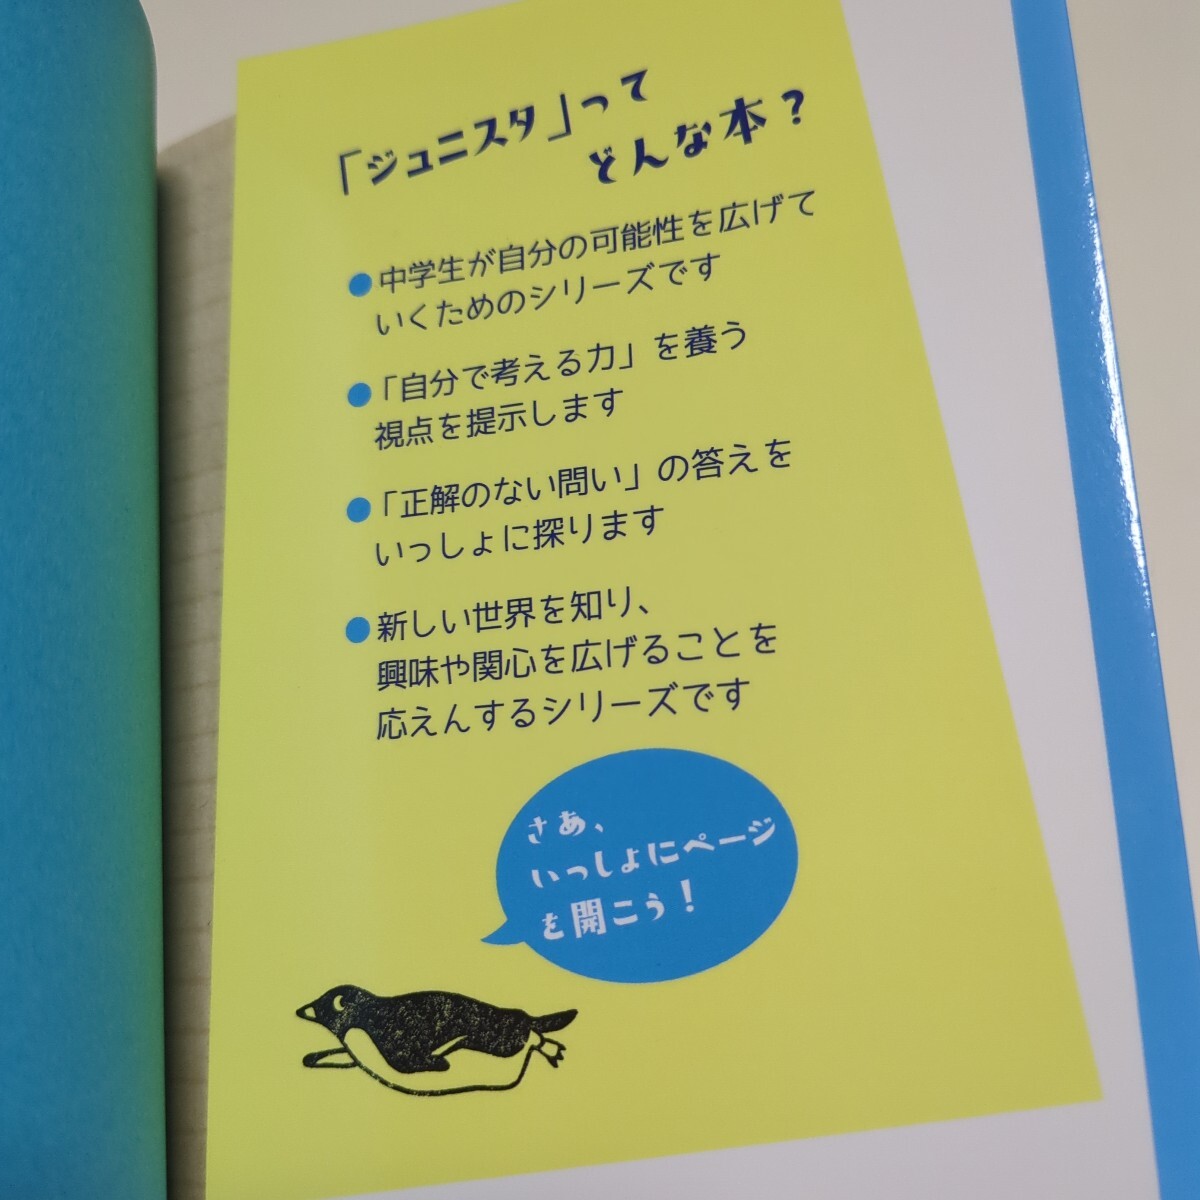 「ジュニスタ」って
どんな本？
●中学生が自分の可能性を広げて
いくためのシリーズです
●「自分で考える力」を養う
視点を提示します
●「正解のない問い」の答えを
いっしょに探ります
●新しい世界を知り、
興味や関心を広げることを
応えんするシリーズです
さあ、
いっしょにページ
を開こう！